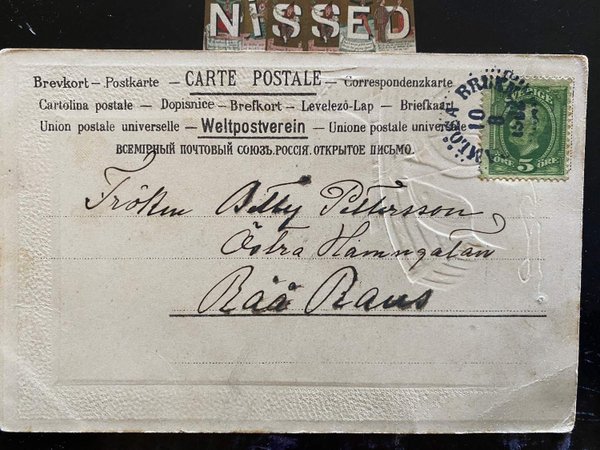 NISSED
Brevkort – Postkarte – CARTE POSTALE – Correspondenzkarte
Cartolina postale – Dopisnice – Brefkort – Levelező-Lap – Briefkaart
Union postale universelle – Weltpostverein – Unione postale universale
ВСЕМІРНЫЙ ПОЧТОВЫЙ СОЮЗЪ. РОССІЯ. ОТКРЫТОЕ ПИСЬМО.
RAMLÖSA BRUNN
10
8
5
ÖRE ÖRE
Fröken Betty Pettersson,
Östra Hamngatan
Råå Raus